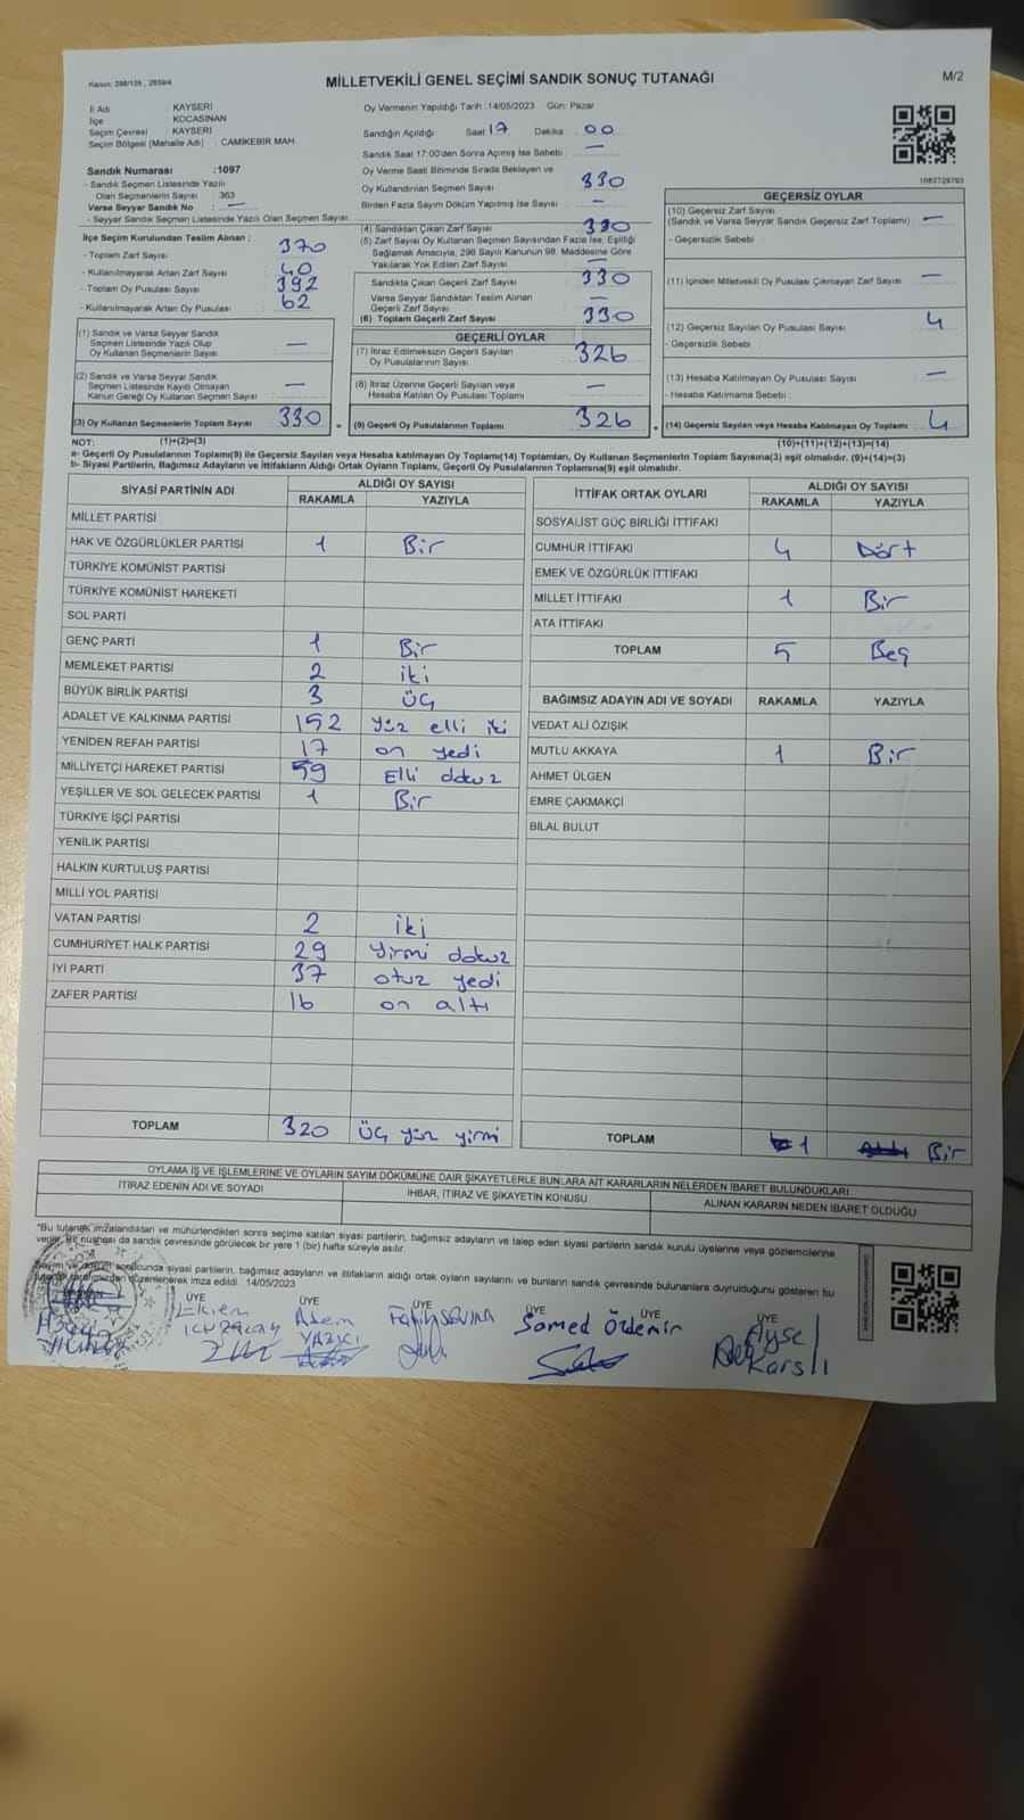 Kanun: 298/105, 2839/4
MİLLETVEKİLİ GENEL SEÇİMİ SANDIK SONUÇ TUTANAĞI
M/2
İl Adı KAYSERİ
İlçe KOCASİNAN
Seçim Çevresi KAYSERİ
Seçim Bölgesi (Mahalle Adı) : CAMİKEBİR MAH.
Oy Vermenin Yapıldığı Tarih :14/05/2023 Gün: Pazar
Sandığın Açıldığı Saat 17 Dakika 00
Sandık Saat 17:00'den Sonra Açılmış İse Sebebi : —
Oy Verme Saati Bitiminde Sırada Bekleyen ve
Oy Kullandırılan Seçmen Sayısı 330
Birden Fazla Sayım Döküm Yapılmış İse Sayısı —
Sandık Numarası :1097
- Sandık Seçmen Listesinde Yazılı
Olan Seçmenlerin Sayısı : 363
Varsa Seyyar Sandık No : —
- Seyyar Sandık Seçmen Listesinde Yazılı Olan Seçmen Sayısı
İlçe Seçim Kurulundan Teslim Alınan :
- Toplam Zarf Sayısı 370
- Kullanılmayarak Artan Zarf Sayısı 40
- Toplam Oy Pusulası Sayısı 392
- Kullanılmayarak Artan Oy Pusulası 62
(1) Sandık ve Varsa Seyyar Sandık
Seçmen Listesinde Yazılı Olup
Oy Kullanan Seçmenlerin Sayısı —
(2) Sandık ve Varsa Seyyar Sandık
Seçmen Listesinde Kayıtlı Olmayan
Kanun Gereği Oy Kullanan Seçmen Sayısı —
(3) Oy Kullanan Seçmenlerin Toplam Sayısı 330
(4) Sandıktan Çıkan Zarf Sayısı 330
(5) Zarf Sayısı Oy Kullanan Seçmen Sayısından Fazla İse, Eşitliği
Sağlamak Amacıyla, 298 Sayılı Kanunun 98. Maddesine Göre
Yakılarak Yok Edilen Zarf Sayısı —
Sandıkta Çıkan Geçerli Zarf Sayısı 330
Varsa Seyyar Sandıktan Teslim Alınan
Geçerli Zarf Sayısı —
(6) Toplam Geçerli Zarf Sayısı 330
GEÇERLİ OYLAR
(7) İtiraz Edilmeksizin Geçerli Sayılan
Oy Pusulalarının Sayısı 326
(8) İtiraz Üzerine Geçerli Sayılan veya
Hesaba Katılan Oy Pusulası Toplamı —
= (9) Geçerli Oy Pusulalarının Toplamı 326
GEÇERSİZ OYLAR
(10) Geçersiz Zarf Sayısı
(Sandık ve Varsa Seyyar Sandık Geçersiz Zarf Toplamı) —
- Geçersizlik Sebebi
(11) İçinden Milletvekili Oy Pusulası Çıkmayan Zarf Sayısı —
(12) Geçersiz Sayılan Oy Pusulası Sayısı 4
- Geçersizlik Sebebi
(13) Hesaba Katılmayan Oy Pusulası Sayısı —
- Hesaba Katılmama Sebebi :
+ (14) Geçersiz Sayılan veya Hesaba Katılmayan Oy Toplamı 4
NOT: (1)+(2)=(3) (10)+(11)+(12)+(13)=(14)
a- Geçerli Oy Pusulalarının Toplamı(9) ile Geçersiz Sayılan veya Hesaba katılmayan Oy Toplamı(14) Toplamları, Oy Kullanan Seçmenlerin Toplam Sayısına(3) eşit olmalıdır. (9)+(14)=(3)
b- Siyasi Partilerin, Bağımsız Adayların ve İttifakların Aldığı Ortak Oyların Toplamı, Geçerli Oy Pusulalarının Toplamına(9) eşit olmalıdır.
SİYASİ PARTİNİN ADI ALDIĞI OY SAYISI
RAKAMLA YAZIYLA
MİLLET PARTİSİ
HAK VE ÖZGÜRLÜKLER PARTİSİ 1 Bir
TÜRKİYE KOMÜNİST PARTİSİ
TÜRKİYE KOMÜNİST HAREKETİ
SOL PARTİ
GENÇ PARTİ 1 Bir
MEMLEKET PARTİSİ 2 iki
BÜYÜK BİRLİK PARTİSİ 3 üç
ADALET VE KALKINMA PARTİSİ 152 yüz elli iki
YENİDEN REFAH PARTİSİ 17 on yedi
MİLLİYETÇİ HAREKET PARTİSİ 59 Elli dokuz
YEŞİLLER VE SOL GELECEK PARTİSİ 1 Bir
TÜRKİYE İŞÇİ PARTİSİ
YENİLİK PARTİSİ
HALKIN KURTULUŞ PARTİSİ
MİLLİ YOL PARTİSİ
VATAN PARTİSİ 2 iki
CUMHURİYET HALK PARTİSİ 29 yirmi dokuz
İYİ PARTİ 37 otuz yedi
ZAFER PARTİSİ 16 on altı
TOPLAM 320 üç yüz yirmi
İTTİFAK ORTAK OYLARI ALDIĞI OY SAYISI
RAKAMLA YAZIYLA
SOSYALİST GÜÇ BİRLİĞİ İTTİFAKI
CUMHUR İTTİFAKI 4 Dört
EMEK VE ÖZGÜRLÜK İTTİFAKI
MİLLET İTTİFAKI 1 Bir
ATA İTTİFAKI
TOPLAM 5 Beş
BAĞIMSIZ ADAYIN ADI VE SOYADI RAKAMLA YAZIYLA
VEDAT ALİ ÖZIŞIK
MUTLU AKKAYA 1 Bir
AHMET ÜLGEN
EMRE ÇAKMAKÇİ
BİLAL BULUT
TOPLAM 1 Bir
OYLAMA İŞ VE İŞLEMLERİNE VE OYLARIN SAYIM DÖKÜMÜNE DAİR ŞİKAYETLERLE BUNLARA AİT KARARLARIN NELERDEN İBARET BULUNDUKLARI
İTİRAZ EDENİN ADI VE SOYADI İHBAR, İTİRAZ VE ŞİKAYETİN KONUSU ALINAN KARARIN NEDEN İBARET OLDUĞU
"Bu tutanak imzalandıktan ve mühürlendikten sonra seçime katılan siyasi partilerin, bağımsız adayların ve talep eden siyasi partilerin sandık kurulu üyelerine veya gözlemcilerine
verilir. Bir nüshası da sandık çevresinde görülecek bir yere 1 (bir) hafta süreyle asılır.
sonucunda siyasi partilerin, bağımsız adayların ve ittifakların aldığı ortak oyların sayılarını ve bunların sandık çevresinde bulunanlara duyurulduğunu gösteren bu
düzenlenerek imza edildi. 14/05/2023
ÜYE ÜYE ÜYE ÜYE ÜYE ÜYE
Ekrem
Adem YAZICI
Fatih
Samed Özdemir
Ayşe Karslı